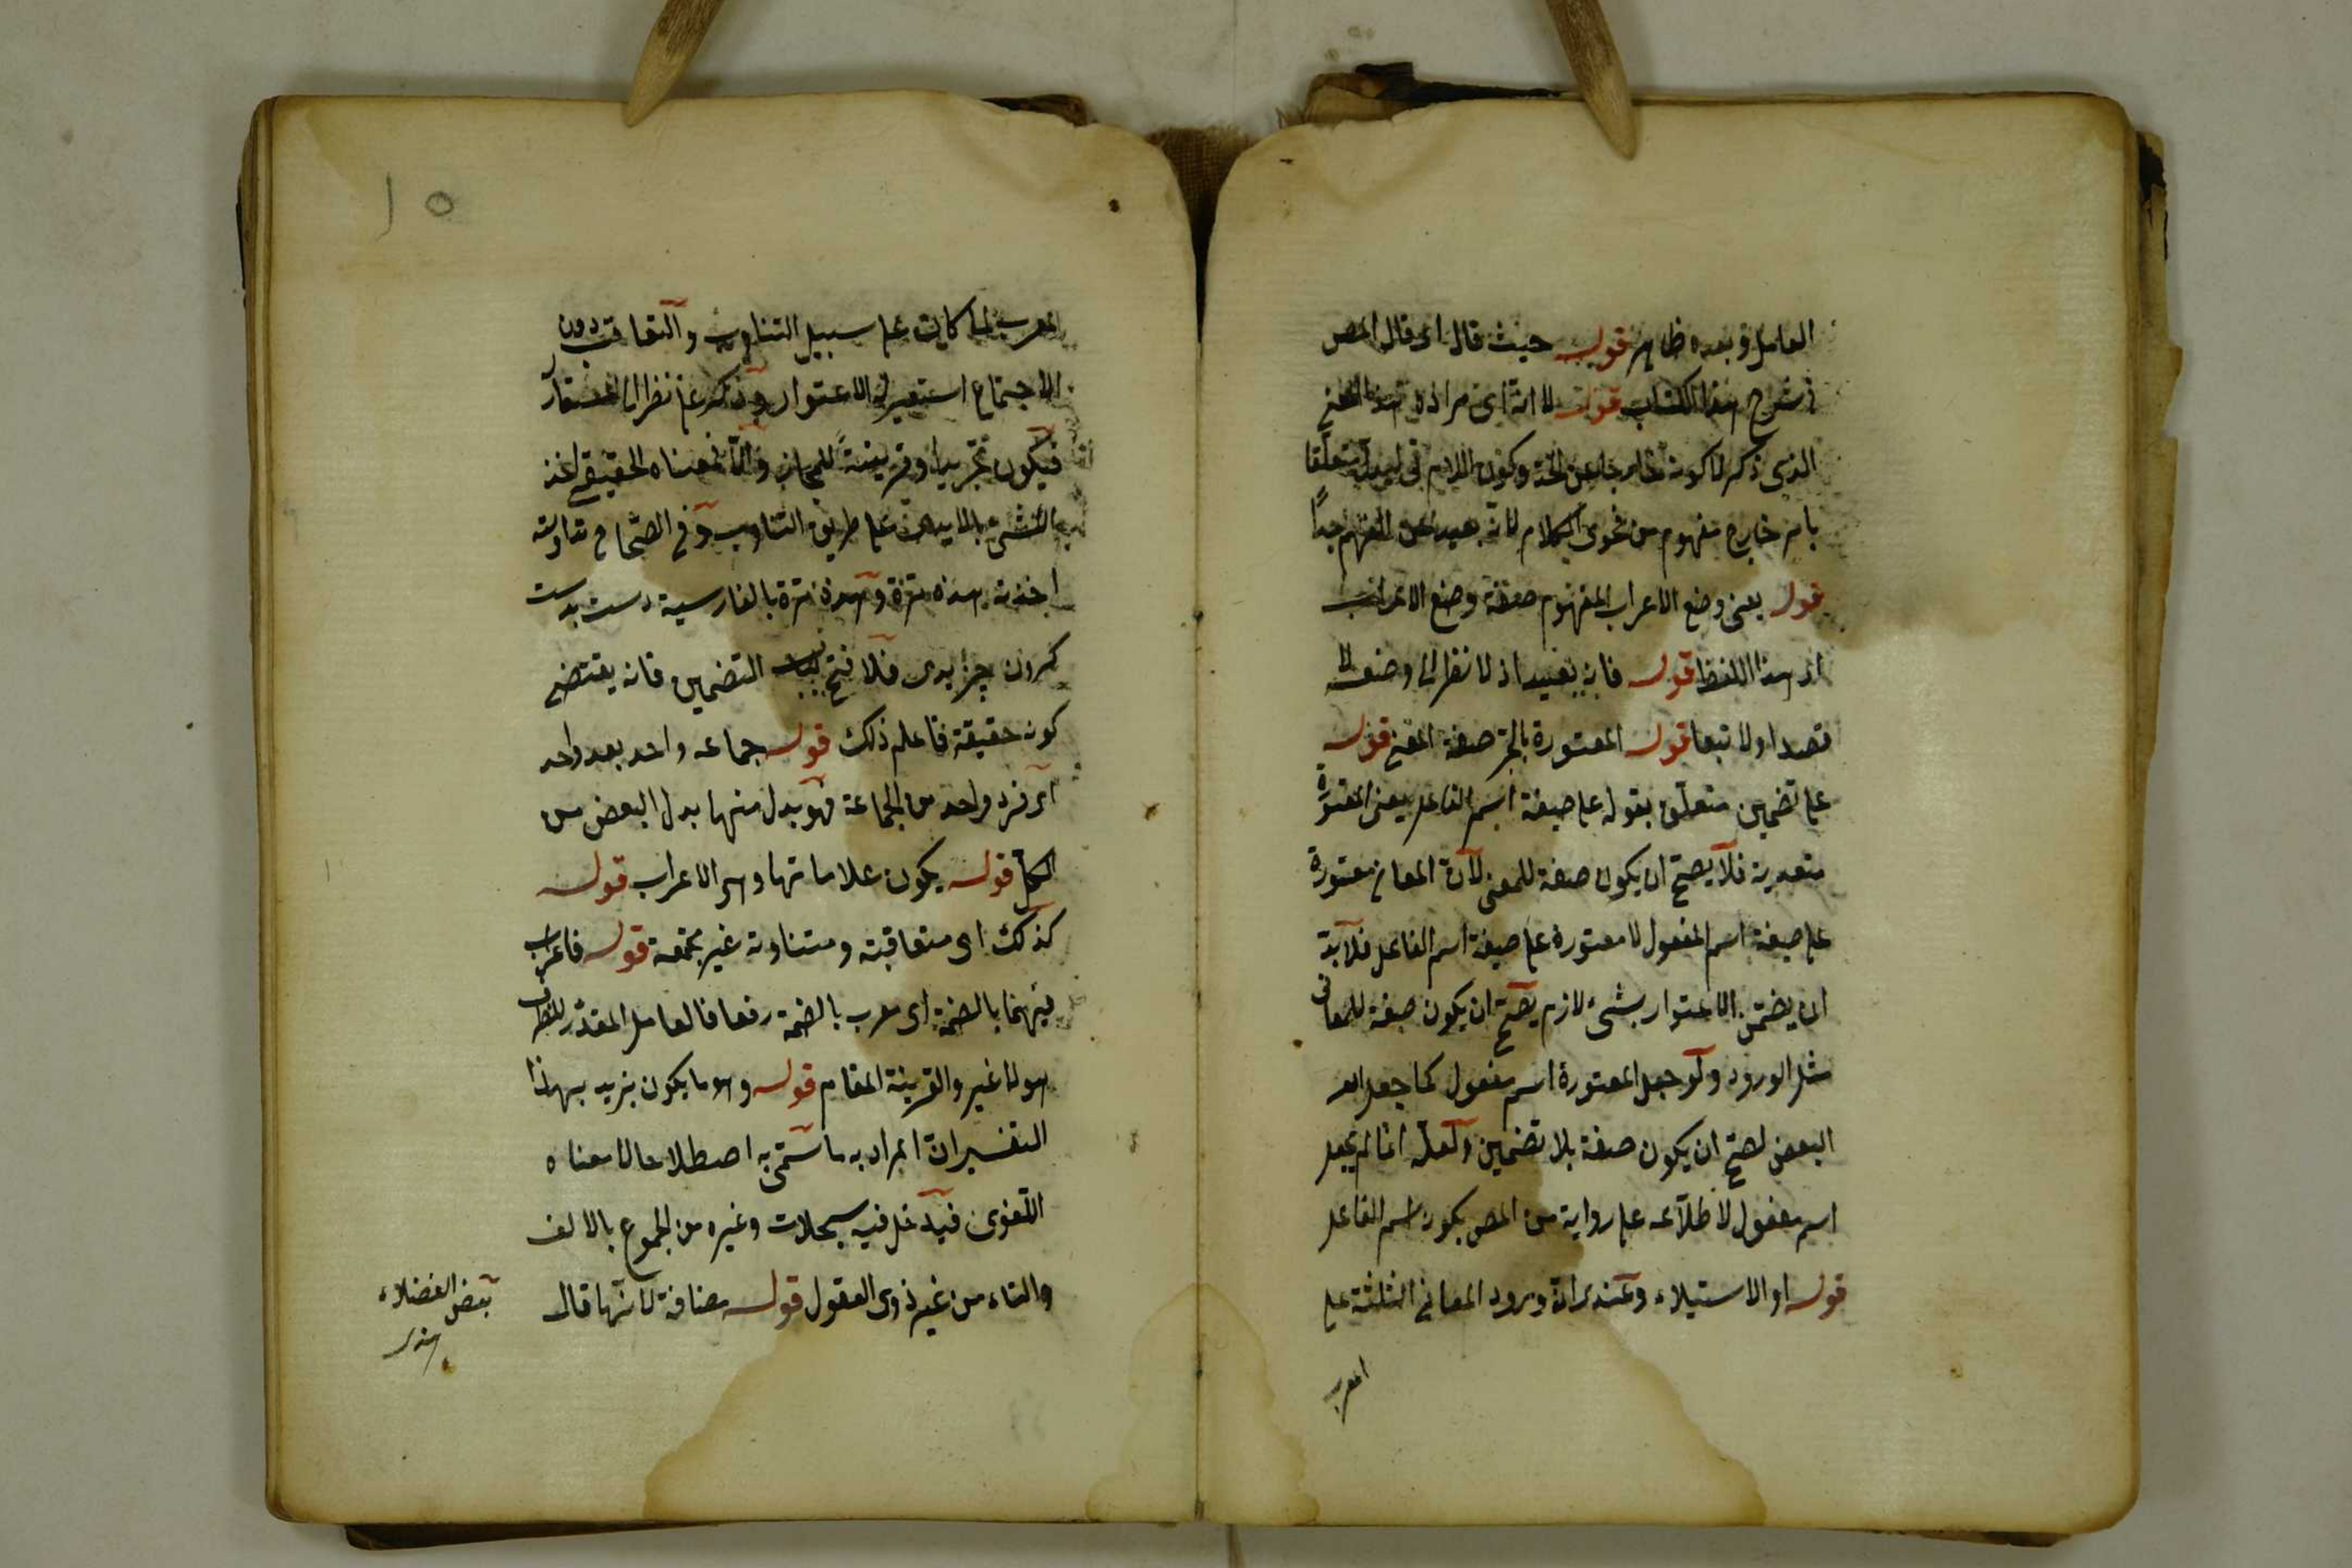 العامل وبعده ظاهر قوله حيث قال اى قال المص
فى شرح هذا الكتاب قوله لا انه اى مراده هذا المعنى
الذى ذكر لا كونه خارجا عن الحد وكون اللام فى ليدل متعلقا
بامر خارج مفهوم من فحوى الكلام لانه بعيد عن الفهم جدا
قوله يعنى وضع الاعراب المفهوم صفة وضع الاعراب
اى هذا اللفظ قوله فانه بعيد اذ لا نظر الى وضعه لا
قصدا ولا تبعا قوله المعتورة بالجر صفة المعنى قوله
على تضمين متعلق بقوله على صيغة اسم الفاعل يعنى المعتورة
متعدية فلا يصح ان يكون صفة للمعنى لان المعانى معتورة
على صيغة اسم المفعول لا معتورة على صيغة اسم الفاعل فلا بد
ان يضمن الاعتوار بشىء لازم يصح ان يكون صفة للمعانى
مثل الورود ولو جعل المعتورة اسم مفعول كما جعله
البعض لصح ان يكون صفة بلا تضمين ولعله انما لم يجعل
اسم مفعول لاطلاعه على رواية من المص بكون اسم الفاعل
قوله او الاستيلاء وعندى ان ورود المعانى الثلثة على
المعرب
١٥
المعرب لما كانت على سبيل التناوب والتعاقب دون
الاجتماع استعير له الاعتوار وذكر على نظرا الى المستعار
فيكون تجريدا وقرينة للمجاز والا فمعناه الحقيقى اخذ
الشىء بالايدى على طريق التناوب وفى الصحاح تداولته
اخذته هذه مرة وهذه مرة بالفارسية دست بدست
كردن چيزيرى فلا فتح لباب التضمين فانه يقتضى
كونه حقيقة فاعلم ذلك قوله جماعه واحد بعد واحد
اى فرد واحد من الجماعة فهو بدل منها بدل البعض من
الكل قوله يكون علاماتها وهى الاعراب قوله
كذلك اى متعاقبة ومتناوبة غير مجتمعة قوله فاعراب
فيهما بالضمة اى معرب بالضمة رفعا فالعامل المقدر للظرف
هو لا غير والقرينة المقام قوله وهو ما يكون يزيد بهذا
التفسير ان المراد به ما سمى به اصطلاحا لا معناه
اللغوى فيدخل فيه سجلات وغيره من الجموع بالالف
والتاء من غير ذوى العقول قوله مضافة لانها قال
بعض الفضلاء